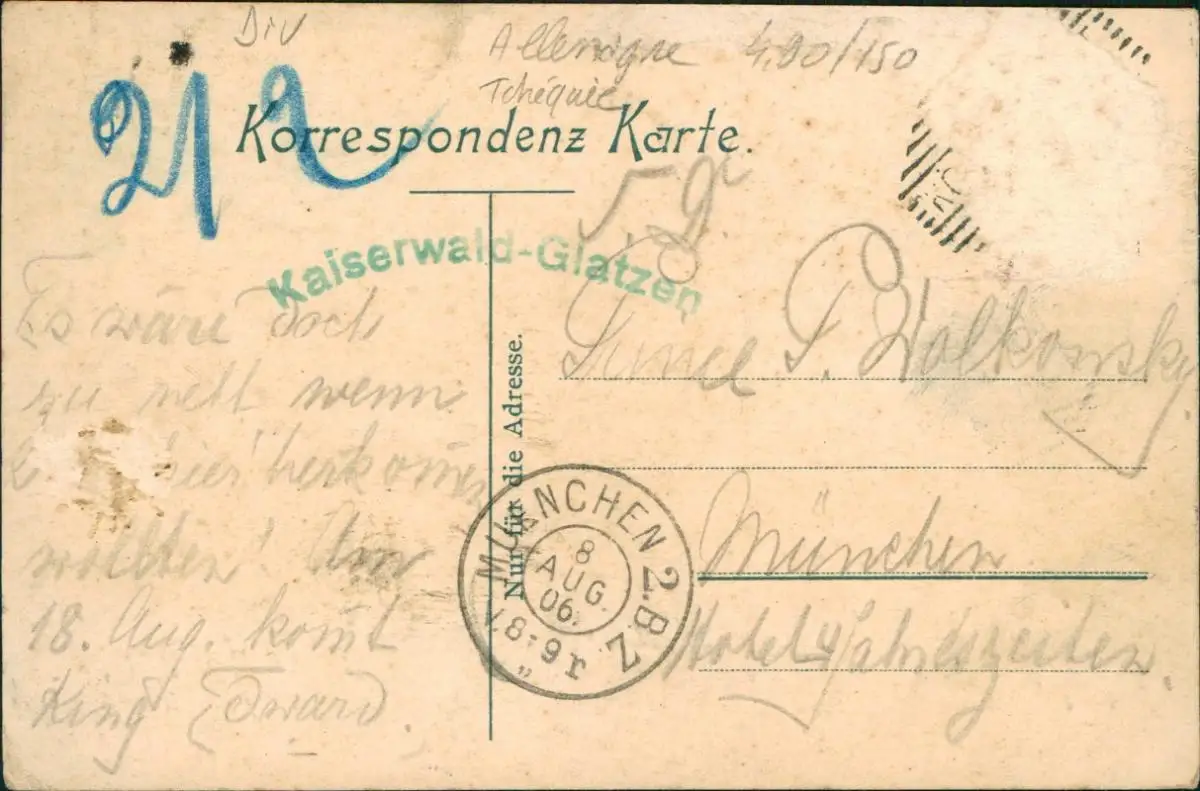 Div
Allemagne 4,90/150
Tchéquie
212
Korrespondenz Karte.
Kaiserwald-Glatzen
Es wäre doch
zu nett wenn
hier herkom̄en
wollten! Am
18. Aug. kom̄t
King Edward.
Nur für die Adresse.
MUENCHEN 2.B.Z.
8
AUG.
06.
8-9
P. Wolkowsky
München
Hotel 4 Jahreszeiten